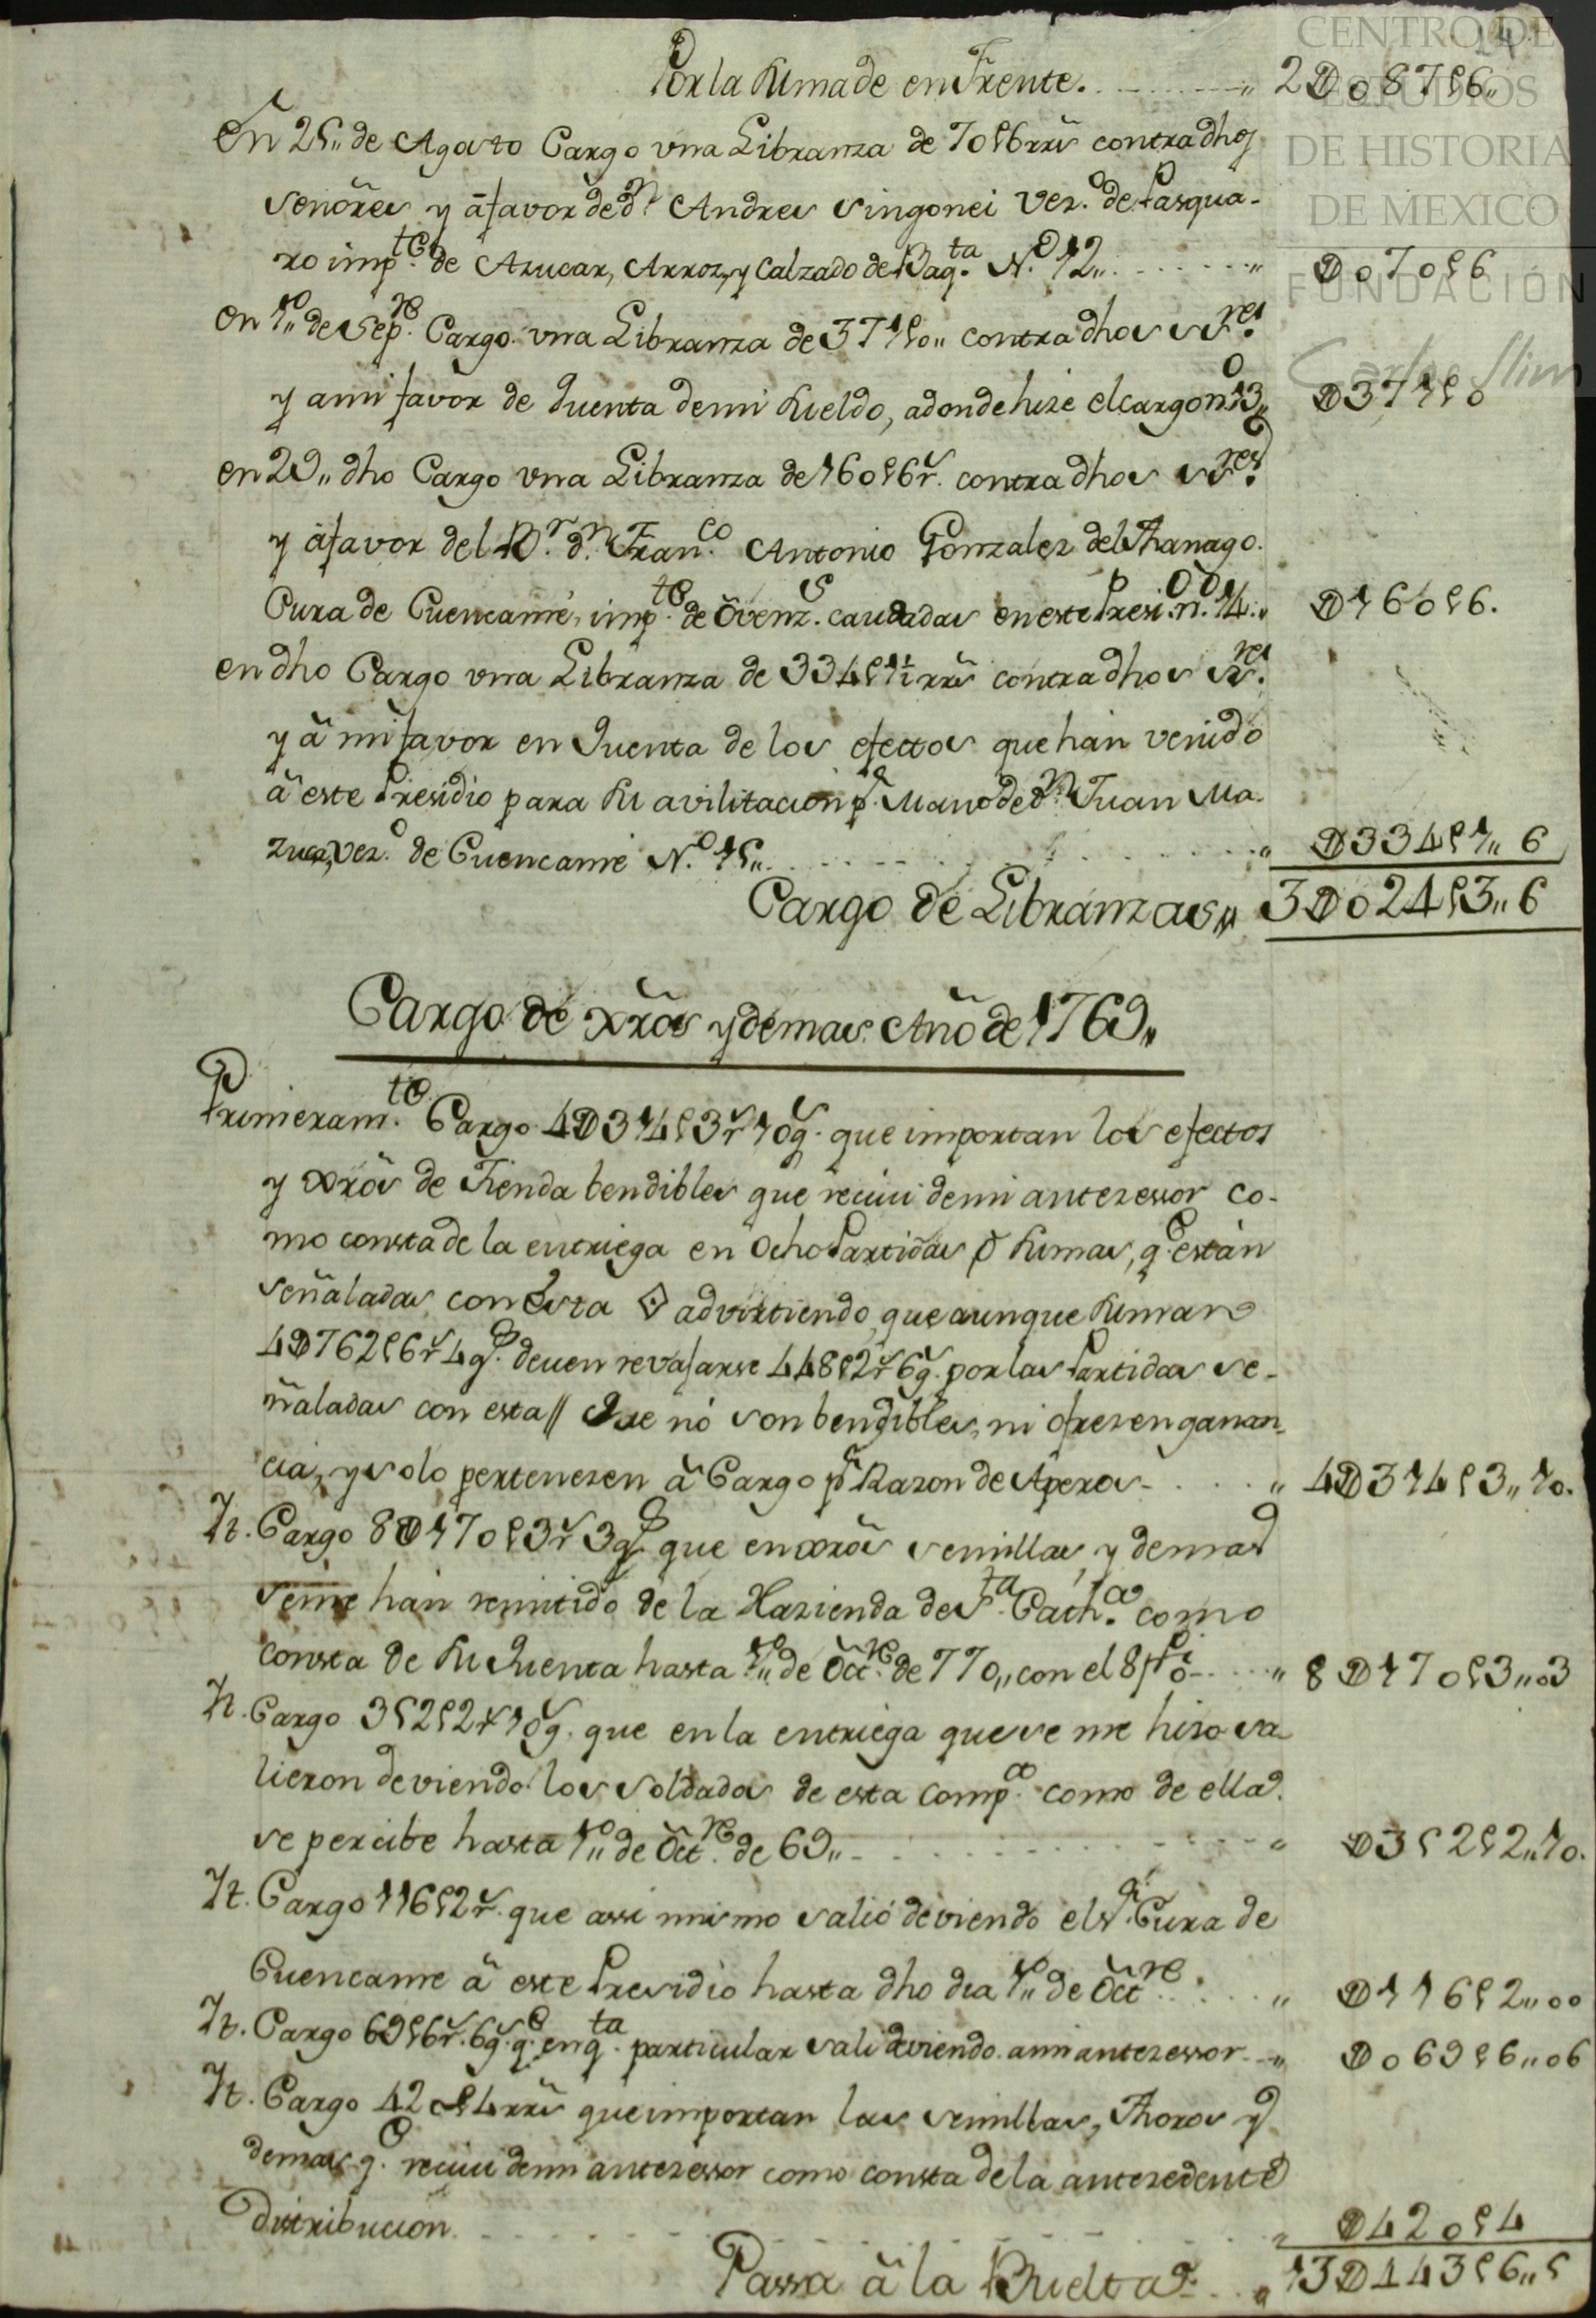 CENTRO DE
ESTUDIOS
DE HISTORIA
DE MEXICO
FUNDACIÓN
Carlos Slim
Por la suma de en Frente. 2D087p6„
En 25„ de Agosto Cargo vna Libranza de 70p6 rrs contra dhos
Señores y â favor de dn. Andres Singonei Vezo. de Pasqua-
ro impte. de Azucar, Arroz, y Calzado de Baqta. No. 12„ D070p6
en 1o„ de Sepre. Cargo vna Libranza de 371p0„ contra dhos SSres.
y a mi favor de Quenta de mi sueldo, adonde hize el cargo no. 13„ D371p0
en 29„ dho Cargo vna Libranza de 160p6r. contra dhos SSres.
y â favor del Br. dn. Franco. Antonio Gonzalez del Thanago.
Cura de Cuencamé, impte. de ôvenzs. causadas en este Presido. no. 14„ D160p6.
en dho Cargo vna Libranza de 334p1½ rrs contra dhos SSres.
y â mi favor en Quenta de los efectos que han venido
â este Presidio para su avilitacion pr. Mano de dn. Juan Ma-
zuca, vezo. de Cuencame No. 15„ D334p1„6
Cargo de Libranzas„ 3D024p3„6
Cargo de xros y demas Año de 1769„
Primeramte. Cargo 4D314p3r10gs. que importan los efectos
y xros de Tienda bendibles que reciui de mi antezessor co-
mo consta de la entriega en Ocho Partidas ô sumas, qe. están
señaladas con Esta ◊ advirtiendo, que aunque suman
4D762p6r4gs. deuen revajarse 448p2r6gs. por las Partidas se-
ñaladas con esta // Que nó son bendibles, ni ofrezen ganan-
cia, y solo pertenezen â Cargo pr. Razon de Aperos. 4D314p3„10.
Yt. Cargo 8D170p3r3gs. que en xros semillas, y demas
se me han remitido de la Hazienda de Sta. Catha. como
consta de su Quenta hasta 1o„ de Octre. de 770„ con el 8 po 8D170p3„03
Yt. Cargo 352p2r10gs. que en la entriega que se me hizo sa-
lieron deviendo los Soldados de esta Compa. como de ella
se percibe hasta 1o„ de Octre. de 69„ D352p2„10.
Yt. Cargo 116p2r. que assi mismo salió deviendo el Sr. Cura de
Cuencame â este Presidio hasta dho dia 1o„ de Octre. D116p2„00
Yt. Cargo 69p6r.6gs. qe. en qta. particular sali deviendo a mi antezessor D069p6„06
Yt. Cargo 420p4 rrs que importan las semillas, Thoros y
demas qe. reciui de mi antezessor como consta de la antezedente
Distribucion. D420p4
Passa â la Buelta 13D443p6„5